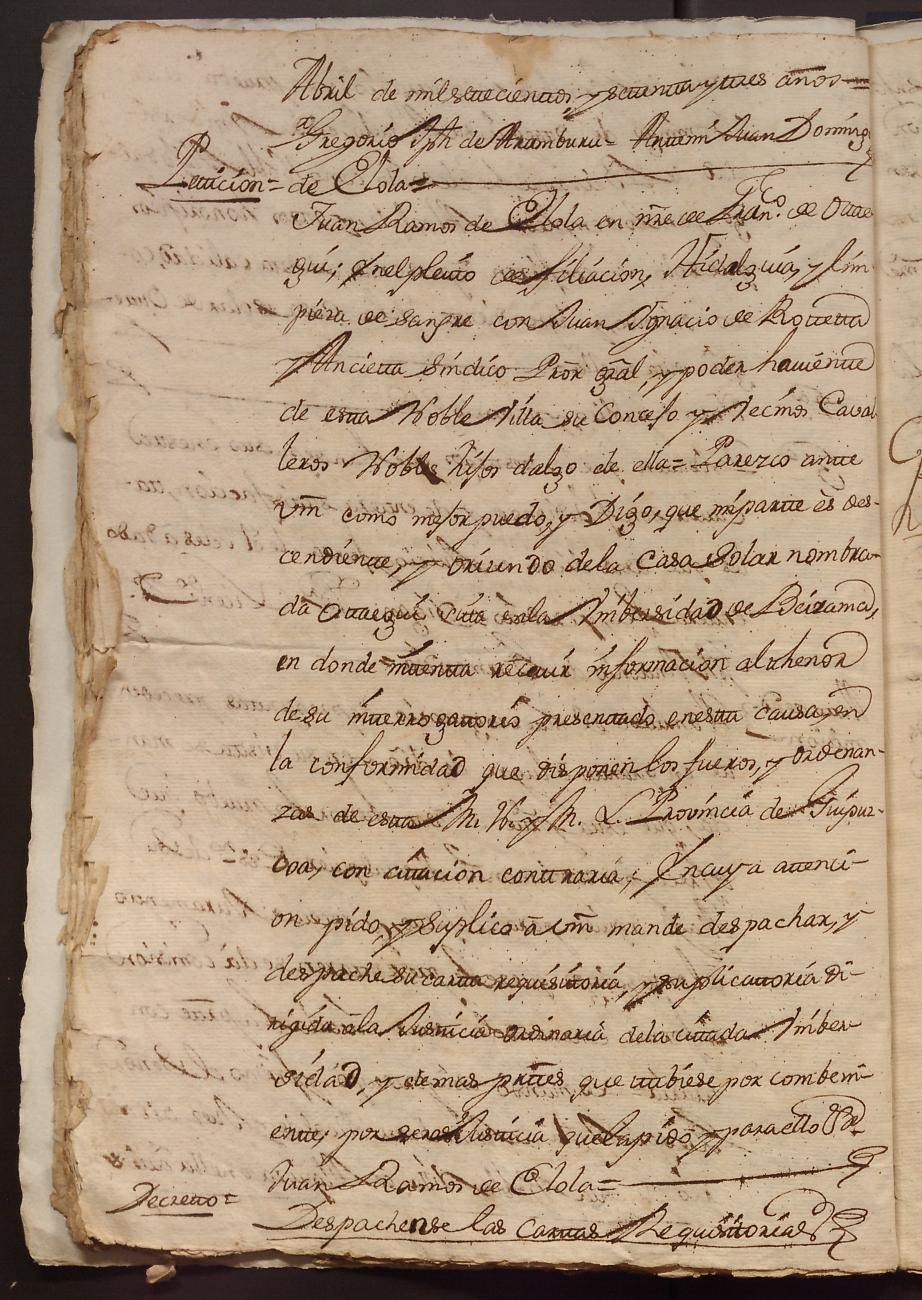 Abril de mil setecientos, y setenta y tres años=
Gregorio Jph de Aramburu= Antemi Juan Doming
Peticion= de Elola=
Juan Ramos de Elola en nre de Franco. de Otae-
gui; En el pleito de filiacion, Hidalguia, y lim-
pieza de sangre con Juan Ignacio de Rotetta
y Ancietta sindico Pror gral, y poder haviente
de esta Noble Villa su Concejo y Vecinos Caval-
leros Nobles hijos dalgo de ella= Parezco ante
vm como mejor puedo, y Digo, que mi parte es des-
cendiente, y oriundo de la Casa Solar nombra-
da Otaegui cita en la Vnibersidad de Beizama,
en donde intenta recevir informacion al thenor
de su interrogatorio presentado en esta Causa, en
la conformidad que disponen los fueros, y ordenan-
zas de esta M. N. y M. L. Provincia de Guipuz-
coa, con citacion contraria; En cuya attenci-
on pido, y suplico â vm mande despachar, y
despache su carta requisitoria, y suplicattoria di-
rigida â la Justicia ordinaria de la citada Vniber-
sidad, y demas partes que tubiese por combeni-
ente, por ser de Justicia que la pido, y para ello &a
Juan Ramos de Elola=
Decretto=
Despachense las Cartas Requisitorias